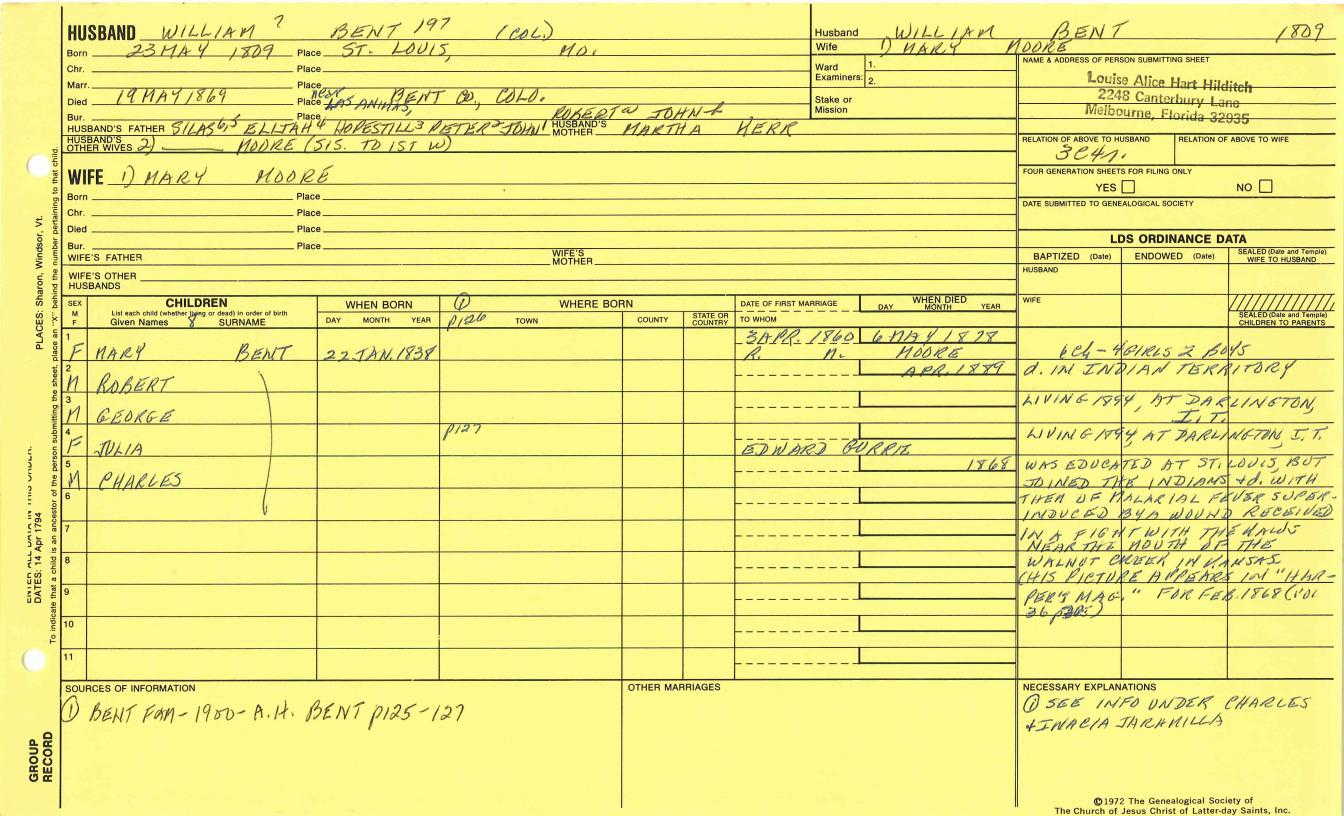 HUSBAND WILLIAM 7 BENT 197 (COL.)
Born 23 MAY 1809 Place ST. LOUIS, MO.
Chr. Place
Marr. Place
Died 19 MAY 1869 Place near LAS ANIMAS, BENT CO, COLO.
Bur. Place
HUSBAND'S FATHER SILAS 6,5 ELIJAH 4 HOPESTILL 3 PETER 2 JOHN 1 ROBERT a JOHN b HUSBAND'S MOTHER MARTHA KERR
HUSBAND'S OTHER WIVES 2) MOORE (SIS. TO 1ST W)
WIFE 1) MARY MOORE
Born Place
Chr. Place
Died Place
Bur. Place
WIFE'S FATHER WIFE'S MOTHER
WIFE'S OTHER HUSBANDS
Husband WILLIAM BENT 1809
Wife 1) MARY MOORE
Ward Examiners: 1.
2.
Stake or Mission
NAME & ADDRESS OF PERSON SUBMITTING SHEET
Louise Alice Hart Hilditch
2248 Canterbury Lane
Melbourne, Florida 32935
RELATION OF ABOVE TO HUSBAND RELATION OF ABOVE TO WIFE
3C4r.
FOUR GENERATION SHEETS FOR FILING ONLY
YES NO
DATE SUBMITTED TO GENEALOGICAL SOCIETY
LDS ORDINANCE DATA
BAPTIZED (Date) ENDOWED (Date) SEALED (Date and Temple) WIFE TO HUSBAND
HUSBAND
WIFE
SEALED (Date and Temple) CHILDREN TO PARENTS
SEX M F
CHILDREN
List each child (whether living or dead) in order of birth
Given Names 8 SURNAME
WHEN BORN
DAY MONTH YEAR
① p126
WHERE BORN
TOWN COUNTY STATE OR COUNTRY
DATE OF FIRST MARRIAGE
TO WHOM
WHEN DIED
DAY MONTH YEAR
1 F MARY BENT 22 JAN. 1838 3 APR. 1860 6 MAY 1878
R. M. MOORE 6 Ch - 4 GIRLS 2 BOYS
2 M ROBERT APR. 1889 d. IN INDIAN TERRITORY
3 M GEORGE LIVING 1894, AT DARLINGTON, I.T.
4 F JULIA p127 EDWARD GURRIE LIVING 1894, AT DARLINGTON, I.T.
5 M CHARLES 1868 WAS EDUCATED AT ST. LOUIS, BUT
JOINED THE INDIANS + d. WITH
6 THEM OF MALARIAL FEVER SUPER-
INDUCED BY A WOUND RECEIVED
7 IN A FIGHT WITH THE KAWS
NEAR THE MOUTH OF THE
8 WALNUT CREEK IN KANSAS
(HIS PICTURE APPEARS IN "HAR-
9 PER'S MAG." FOR FEB. 1868 (VOL
36
10
11
SOURCES OF INFORMATION
① BENT FAM - 1900 - A.H. BENT p125-127
OTHER MARRIAGES
NECESSARY EXPLANATIONS
① SEE INFO UNDER CHARLES
+ INACIA JARAMILLA
©1972 The Genealogical Society of
The Church of Jesus Christ of Latter-day Saints, Inc.
PLACES: Sharon, Windsor, Vt.
ENTER ALL DATA IN THIS ORDER:
DATES: 14 Apr 1794
To indicate that a child is an ancestor of the person submitting the sheet, place an "X" behind the number pertaining to that child.
GROUP RECORD